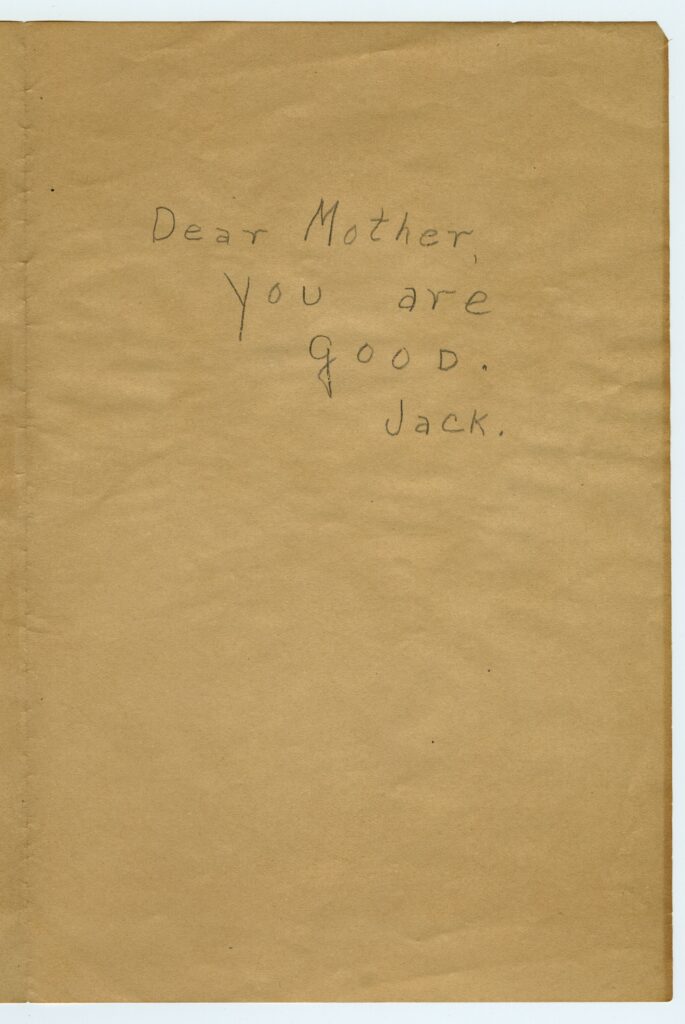 Dear Mother,
you are
good.
Jack.